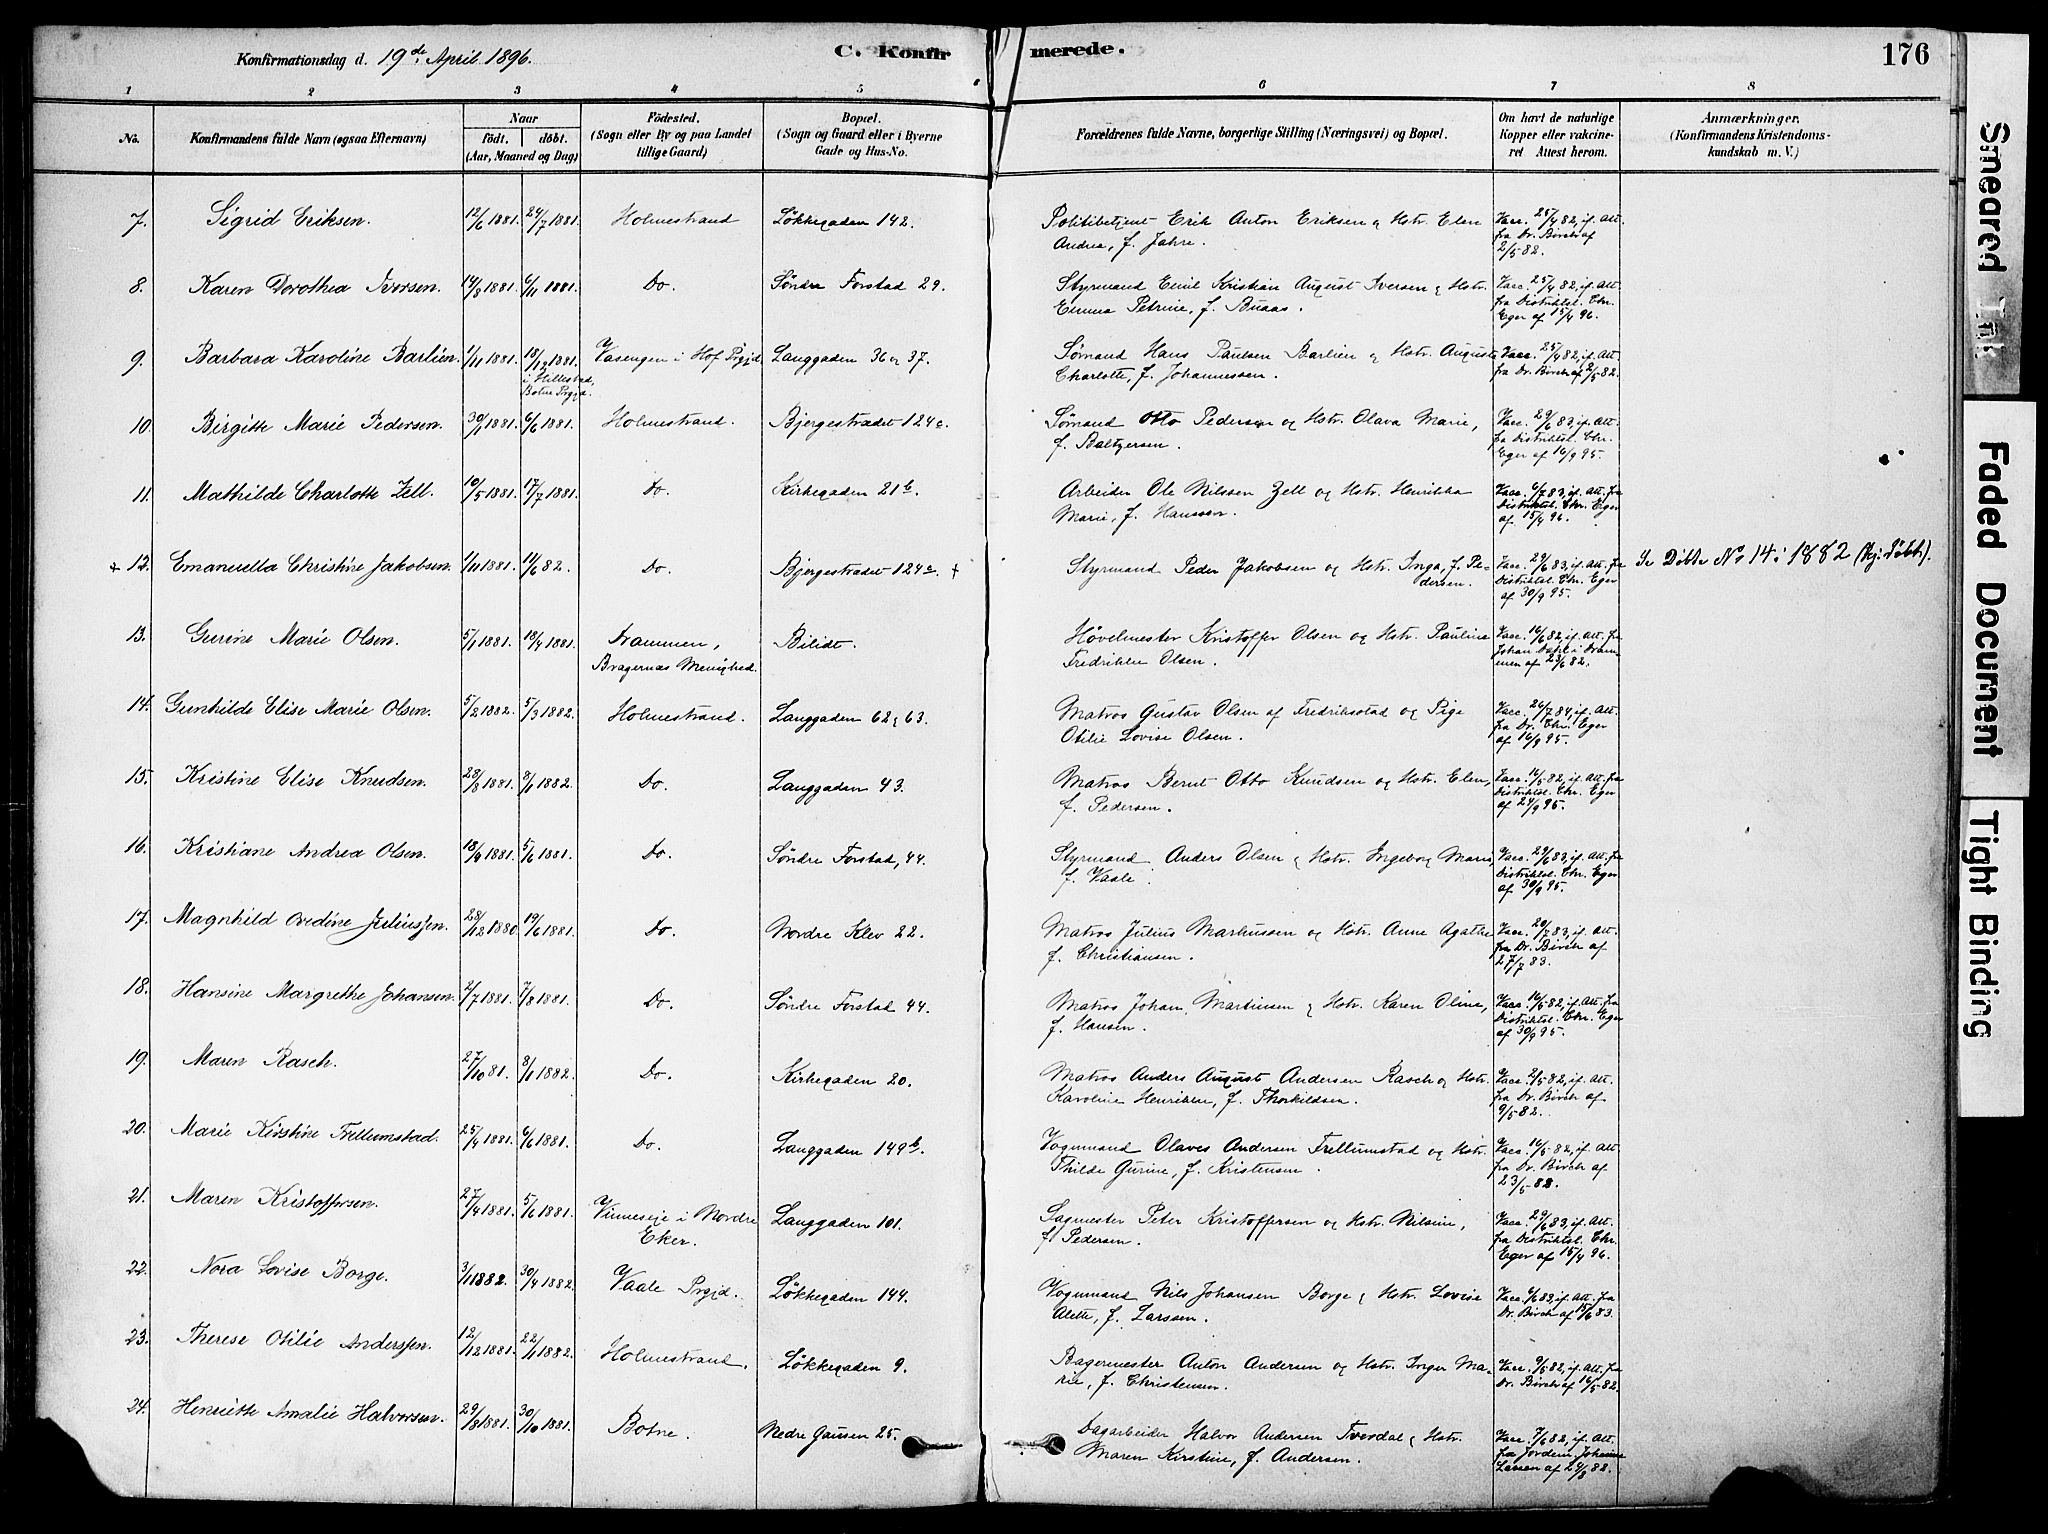 Konfirmationsdag d. 19de April 1896.
C. Konfirmerede.
176
1 2 3 4 5 6 6 7 8
No.
Konfirmandens fulde Navn (ogsaa Efternavn)
Naar
født. døbt.
(Aar, Maaned og Dag)
Fødested.
(Sogn eller By og paa Landet
tillige Gaard)
Bopæl.
(Sogn og Gaard eller i Byerne
Gade og Hus-No.
Forældrenes fulde Navne, borgerlige Stilling (Næringsvei) og Bopæl.
Om havt de naturlige
Kopper eller vakcine-
ret Attest herom.
Anmærkninger.
(Konfirmandens Kristendoms-
kundskab m. V.)
7. Sigrid Eriksen. 12/6 1881. 24/7 1881. Holmestrand Løkkegaden 142. Politibetjent Erik Anton Eriksen og Hstr. Elen Vacc. 25/4 82, if. Att.
Andrea, f. Jahre. fra Dr. Børch af
2/5 82.
8. Karen Dorothea Iversen. 14/8 1881. 6/11 1881. Do. Søndre Forstad 29. Styrmand Emil Kristian August Iversen og Hstr. Vacc. 25/4 82, if. Att.
Emma Petrine, f. Buaas. fra Distriktsl. Chr.
Eger af 15/4 96.
9. Barbara Karoline Barlien. 1/11 1881. 18/12 1881. Vasengen i Hof Prgjd. Langgaden 36 og 37. Sømand Hans Paulsen Barlien og Hstr. Auguste Vacc. 25/4 82, if. Att.
i Hillestad, Charlotte, f. Johannessen. fra Dr. Børch af 2/5 82.
Botne Prgjd.
10. Birgitte Marie Pedersen. 30/1 1881. 6/6 1881. Holmestrand. Bjergestrædet 124c. Sømand Otto Pedersen og Hstr. Olava Marie, Vacc. 29/6 83, if. Att.
f. Baltzersen. fra Distriktsl. Chr.
Eger af 16/9 95.
11. Mathilde Charlotte Zell. 10/5 1881. 17/7 1881. Do. Kirkegaden 21b. Arbeider Ole Nilssen Zell og Hstr. Henrikka Vacc. 6/7 83, if. Att. fra
Marie, f. Hanssen. Distriktsl. Chr. Eger
af 15/4 96.
+ 12. Emanuella Christine Jakobsen. 1/11 1881. 11/6 82. Do. Bjergestrædet 124c. + Styrmand Peder Jakobsen og Hstr. Inga, f. Pe- Vacc. 29/6 83, if. Att. fra Se Døbte No. 14 i 1882 (hj. døbt).
dersen. Distriktsl. Chr. Eger
af 30/9 95.
13. Gurine Marie Olsen. 5/1 1881. 18/4 1881. Drammen, Bilidt. Høvelmester Kristoffer Olsen og Hstr. Pauline Vacc. 16/6 82, if. Att. fra
Bragernæs Menighed. Fredrikke Olsen. Johan i Dram-
men af 23/6 82.
14. Gunhilde Elise Marie Olsen. 5/2 1882. 5/3 1882. Holmestrand. Langgaden 62 og 63. Matros Gustav Olsen af Fredriksstad og Pige Vacc. 26/7 84, if. Att.
Otilie Lovise Olsen. fra Dr. Chr. Eger
af 16/9 95.
15. Kristine Elise Knudsen. 28/8 1881. 8/1 1882. Do. Langgaden 43. Matros Bernt Otto Knudsen og Hstr. Elen, Vacc. 16/5 82, if. Att. fra
f. Pedersen. Distriktsl. Chr. Eger
af 24/9 95.
16. Kristiane Andrea Olsen. 18/4 1881. 5/6 1881. Do. Søndre Forstad, 44. Styrmand Anders Olsen og Hstr. Ingeborg Marie, Vacc. 29/6 83, if. Att. fra
f. Vaale. Distriktsl. Chr. Eger
af 30/9 95.
17. Magnhild Ovedine Juliussen. 28/12 1880. 19/6 1881. Do. Nordre Klev 22. Matros Julius Markussen og Hstr. Anne Agathe Vacc. 20/7 83, if. Att.
f. Christiansen. fra Dr. Børch af
27/7 83.
18. Hansine Margrethe Johansen. 2/7 1881. 7/8 1881. Do. Søndre Forstad 44. Matros Johan Martinsen og Hstr. Karen Oline, Vacc. 16/5 82, if. Att. fra
f. Hansen. Distriktsl. Chr. Eger
af 30/9 95.
19. Maren Rasch. 27/10 81. 8/1 1882. Do. Kirkegaden 20. Matros Anders August Andersen Rasch og Hstr. Vacc. 2/5 82, if. Att.
Karoline Henrikke, f. Thorkildsen. fra Dr. Børch af
9/5 82.
20. Marie Kirstine Frellumstad. 25/4 1881. 6/6 1881. Do. Langgaden 149b. Vognmand Olaves Andersen Frellumstad og Hstr. Vacc. 16/5 82, if. Att.
Thilde Gurine, f. Kristensen. fra Dr. Børch af
23/5 82.
21. Maren Kristoffersen. 27/4 1881. 5/6 1881. Vinneseje i Nordre Langgaden 101. Sagmester Peter Kristoffersen og Hstr. Nilsine, Vacc. 29/6 83, if. Att.
Eker. f. Pedersen. fra Distriktsl. Chr.
Eger af 15/4 96.
22. Nora Lovise Borge. 3/1 1882. 30/4 1882. Vaale Prgjd. Løkkegaden 144. Vognmand Nils Johansen Borge og Hstr. Lovise Vacc. 6/6 83, if. Att. fra
Alette, f. Larssen. Dr. Børch af 15/6 83.
23. Therese Otilie Anderssen. 12/12 1881. 22/1 1882. Holmestrand. Løkkegaden 9. Bagermester Anton Andersen og Hstr. Inger Ma- Vacc. 9/5 82, if. Att. fra
rie, f. Christensen. Dr. Børch af 16/5 82.
24. Henriette Amalie Halvorsen. 29/8 1881. 30/10 1881. Botne. Nedre Gausen 25. Dagarbeider Halvor Andersen Tverdal og Hstr. Vacc. 7/6 82, if. Att.
Maren Kirstine, f. Andersen. fra Jordem. Johanne
Larsen af 24/8 88.
Smeared Ink
Faded Document
Tight Binding